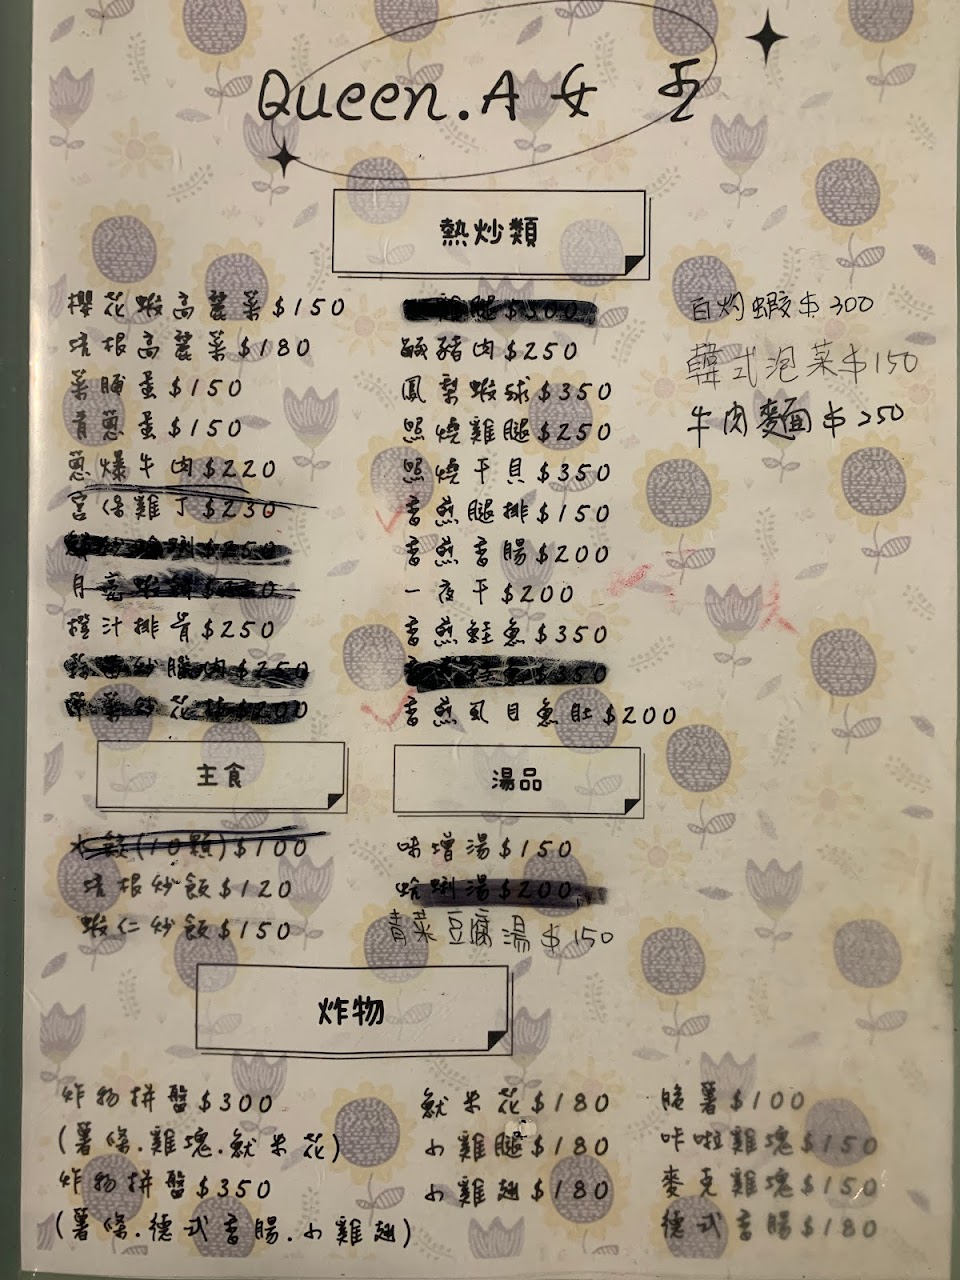 Queen.A女王
熱炒類
櫻花蝦高麗菜$150
培根高麗菜$180
菜脯蛋$150
青蔥蛋$150
蔥爆牛肉$220
宮保雞丁$230
月亮蝦
橙汁排骨$250
腿$300
鹹豬肉$250
鳳梨蝦球$350
照燒雞腿$250
照燒干貝$350
香煎腿排$150
香煎香腸$200
一夜干$200
香煎鮭魚$350
香煎虱目魚肚$200
白灼蝦$300
韓式泡菜$150
牛肉麵$250
主食
水餃(10顆)$100
培根炒飯$120
蝦仁炒飯$150
湯品
味增湯$150
蛤蜊湯$200
青菜豆腐湯$150
炸物
炸物拼盤$300
(薯條.雞塊.魷米花)
炸物拼盤$350
(薯條.德式香腸.小雞翅)
魷米花$180
小雞腿$180
小雞翅$180
脆薯$100
咔啦雞塊$150
麥克雞塊$150
德式香腸$180